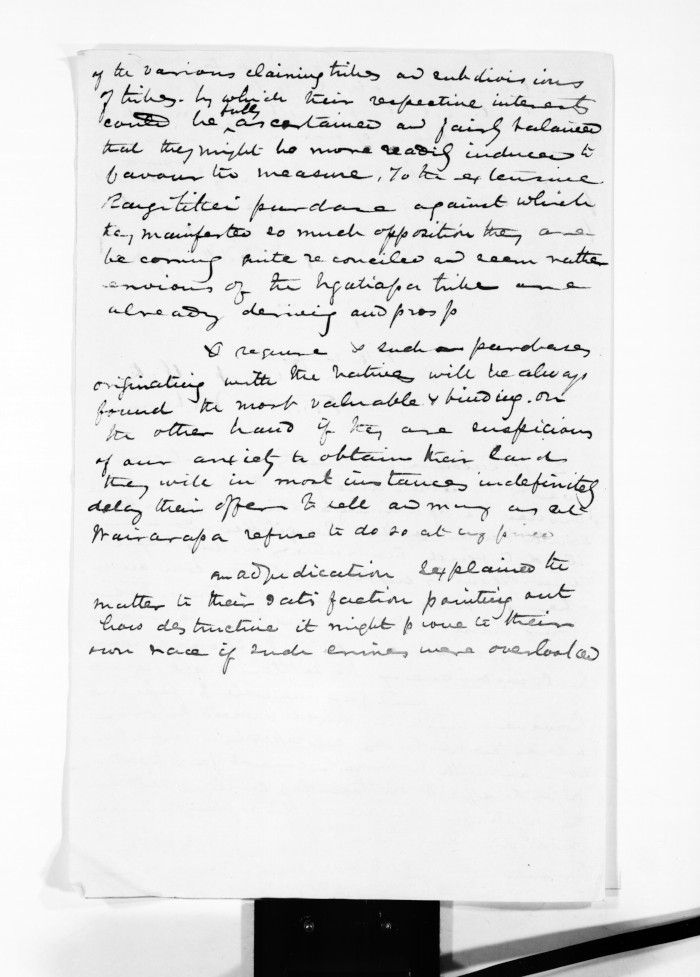 of the various claiming tribes and subdivisions
of tribes. by which their respective interests
could be fully ascertained and fairly balanced
that they might be more readily induced to
favour the measure, To the extensive
Rangitikei purchase against which
they manifested so much opposition they are
becoming quite reconciled and seem rather
envious of the Ngatiapa tribe are
already deriving and prosp
& require & such purchases
originating with the Natives will be always
found the most valuable & binding. on
the other hand if they are suspicious
of our anxiety to obtain their lands
they will in most instances indefinitely
delay their offers to sell and many as at
Wairarapa refuse to do so at any price
an adjudication explained the
matter to their satisfaction pointing out
how destructive it might prove to their
own race if such crimes were overlooked